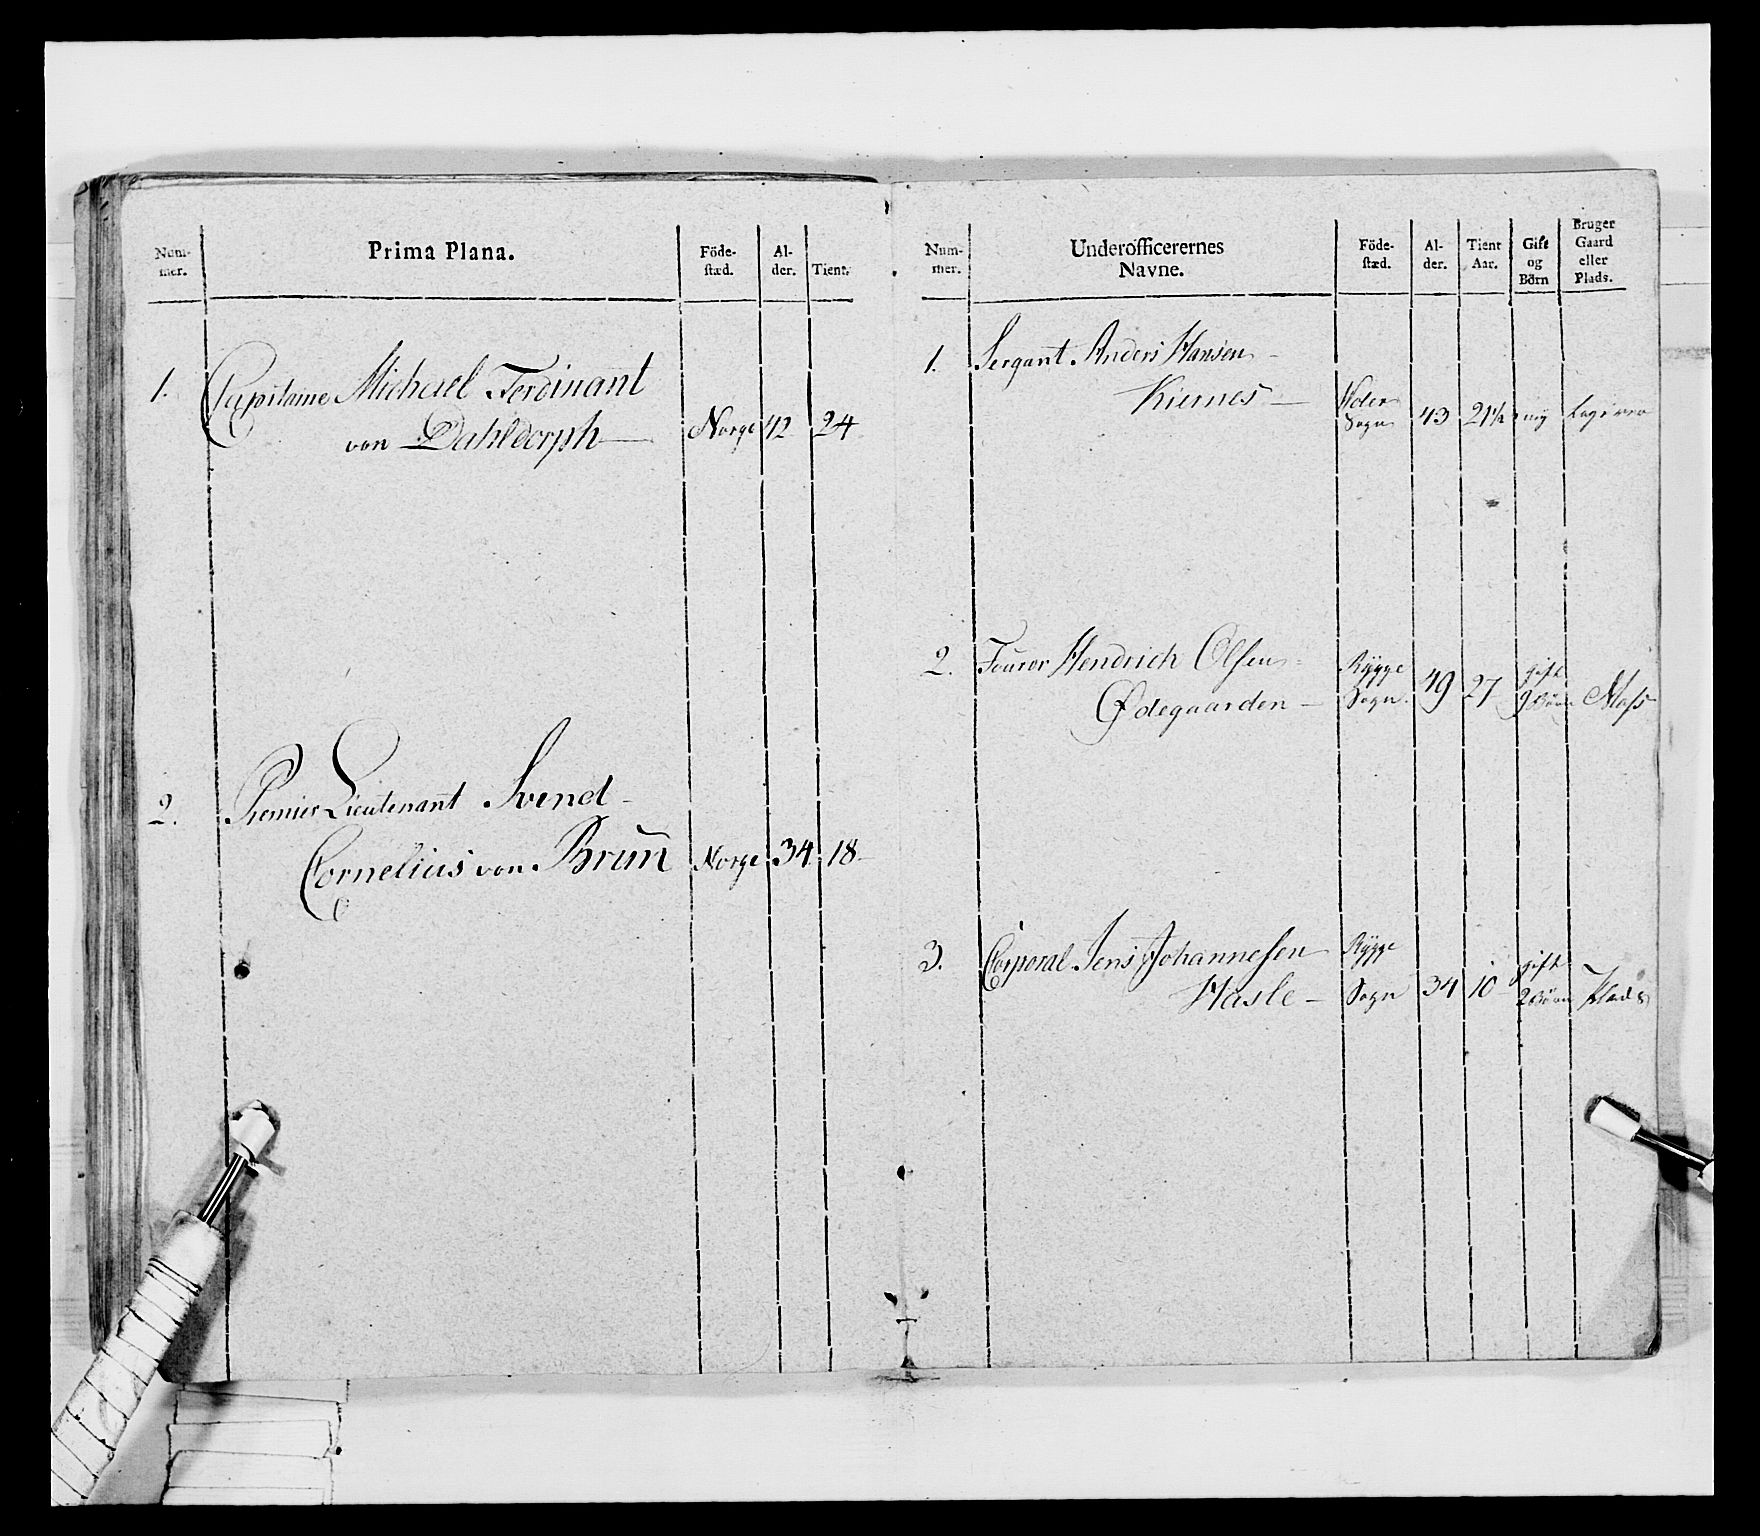 Num-
mer.
Prima Plana.
Föde-
stæd.
Al-
der.
Tient.
1.
Capitaine Michael Ferdinant
von Dahldorph
Norge
42
24
2.
Premier Lieutenant Svend
Cornelius von Brun
Norge
34
18
Num-
mer.
Underofficerernes
Navne.
Föde-
stæd.
Al-
der.
Tient
Aar.
Gift
og
Börn
Bruger
Gaard
eller
Plads.
1.
Sergant Anders Hansen
Kiernes
Sogn
43
21½
2.
Fourer Hendrich Olsen
Ødegaarden
Rygge
Sogn
49
27
gift
9 Börn
Moss
3.
Corporal Jens Johannesen
Hasle
Rygge
Sogn
34
10
gift
2 Börn
Plads